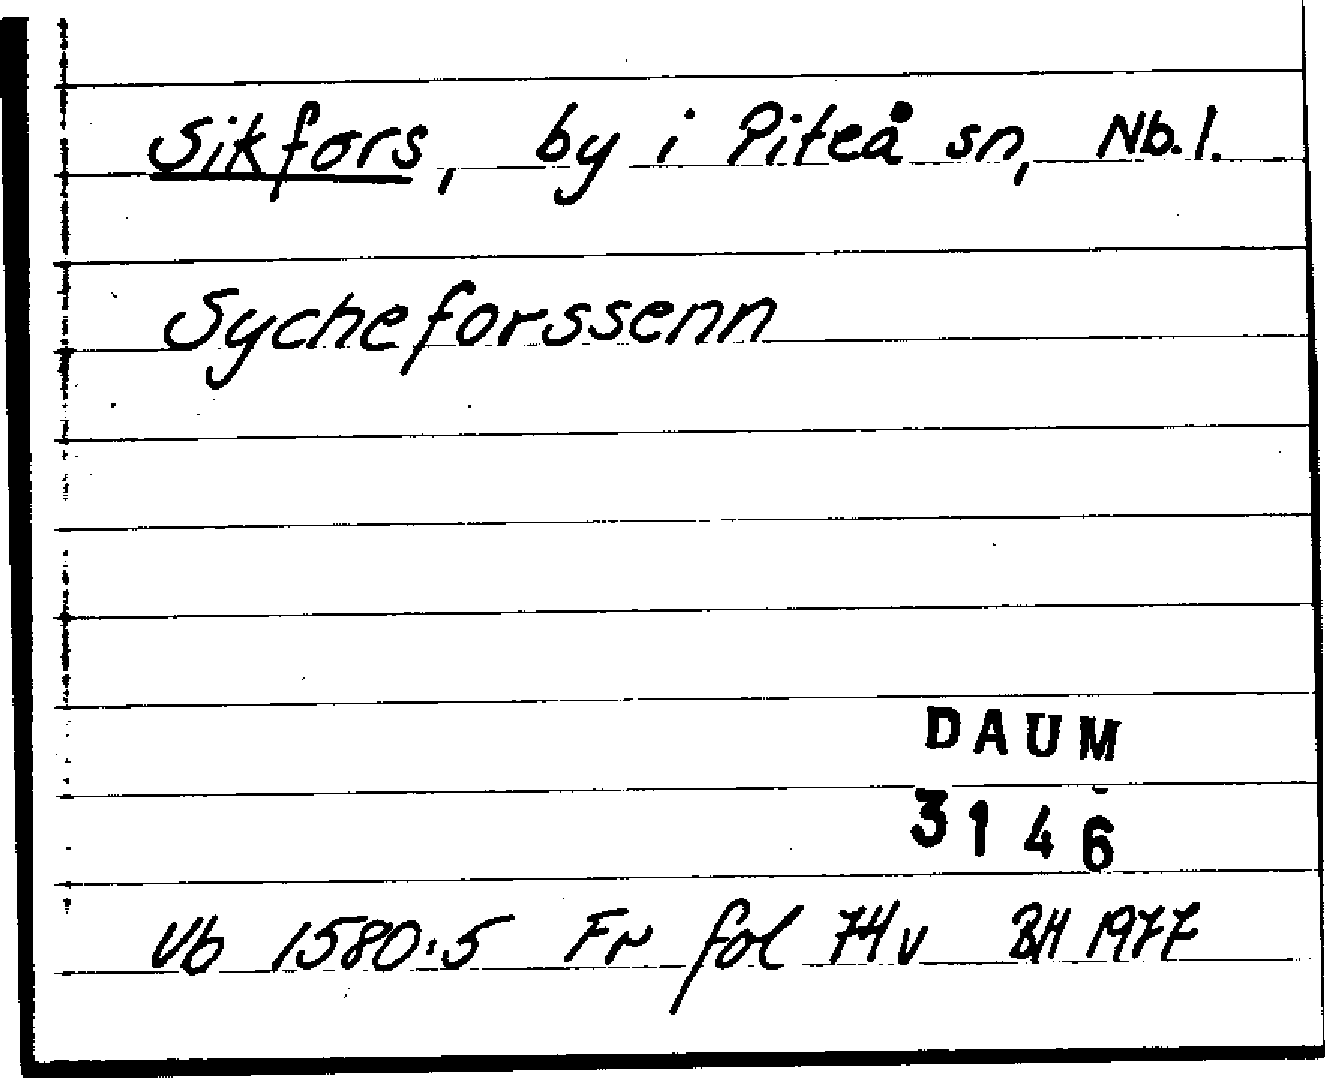 Sikfors, by i Piteå sn, Nb. l.
Sycheforssenn
DAUM
3146
Vb 1580:5 Fr fol 74v BH 1977